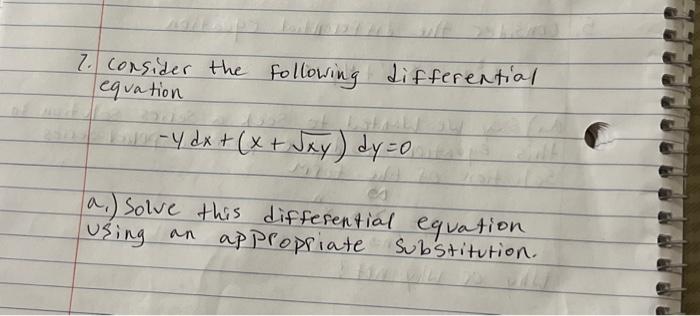 7. consider the following differential
equation
-y dx + (x + √xy) dy = 0
a.) Solve this differential equation
using an appropriate substitution.